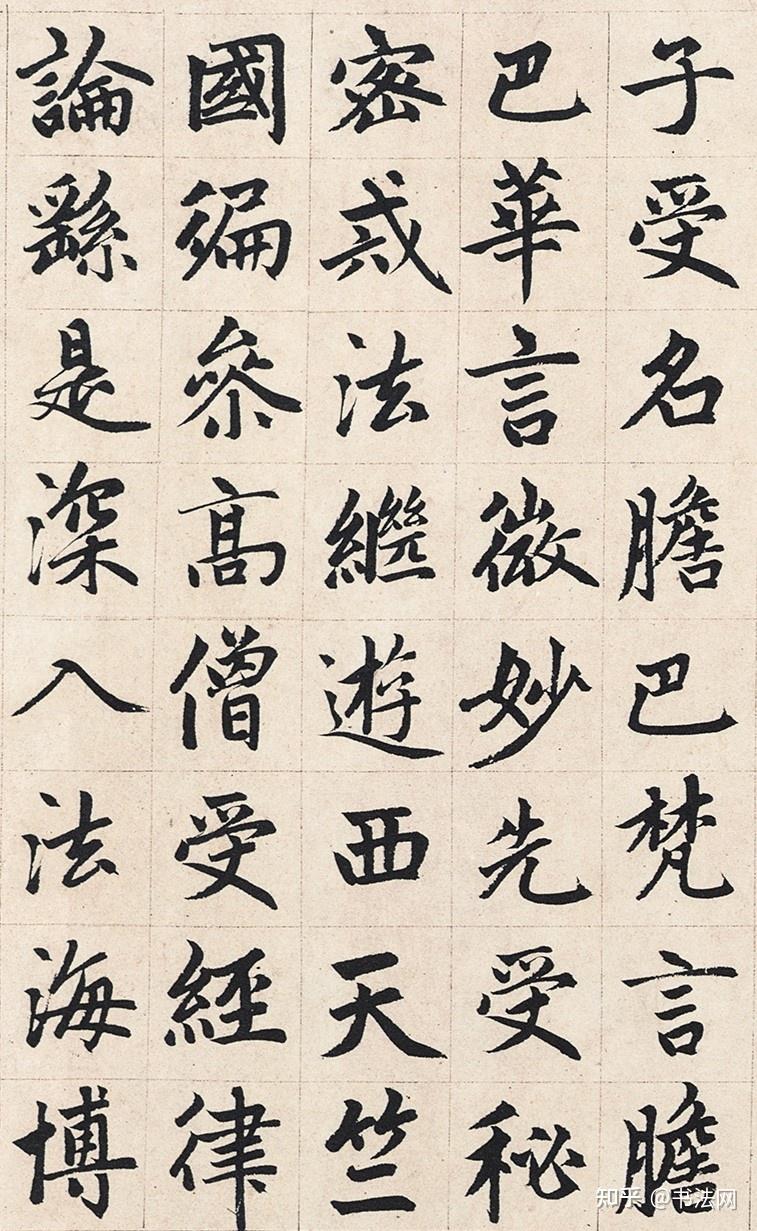 子受名膽巴梵言膽
巴華言微妙先受秘
密戒法繼遊西天竺
國徧參高僧受經律
論繇是深入法海博
知乎 @书法网